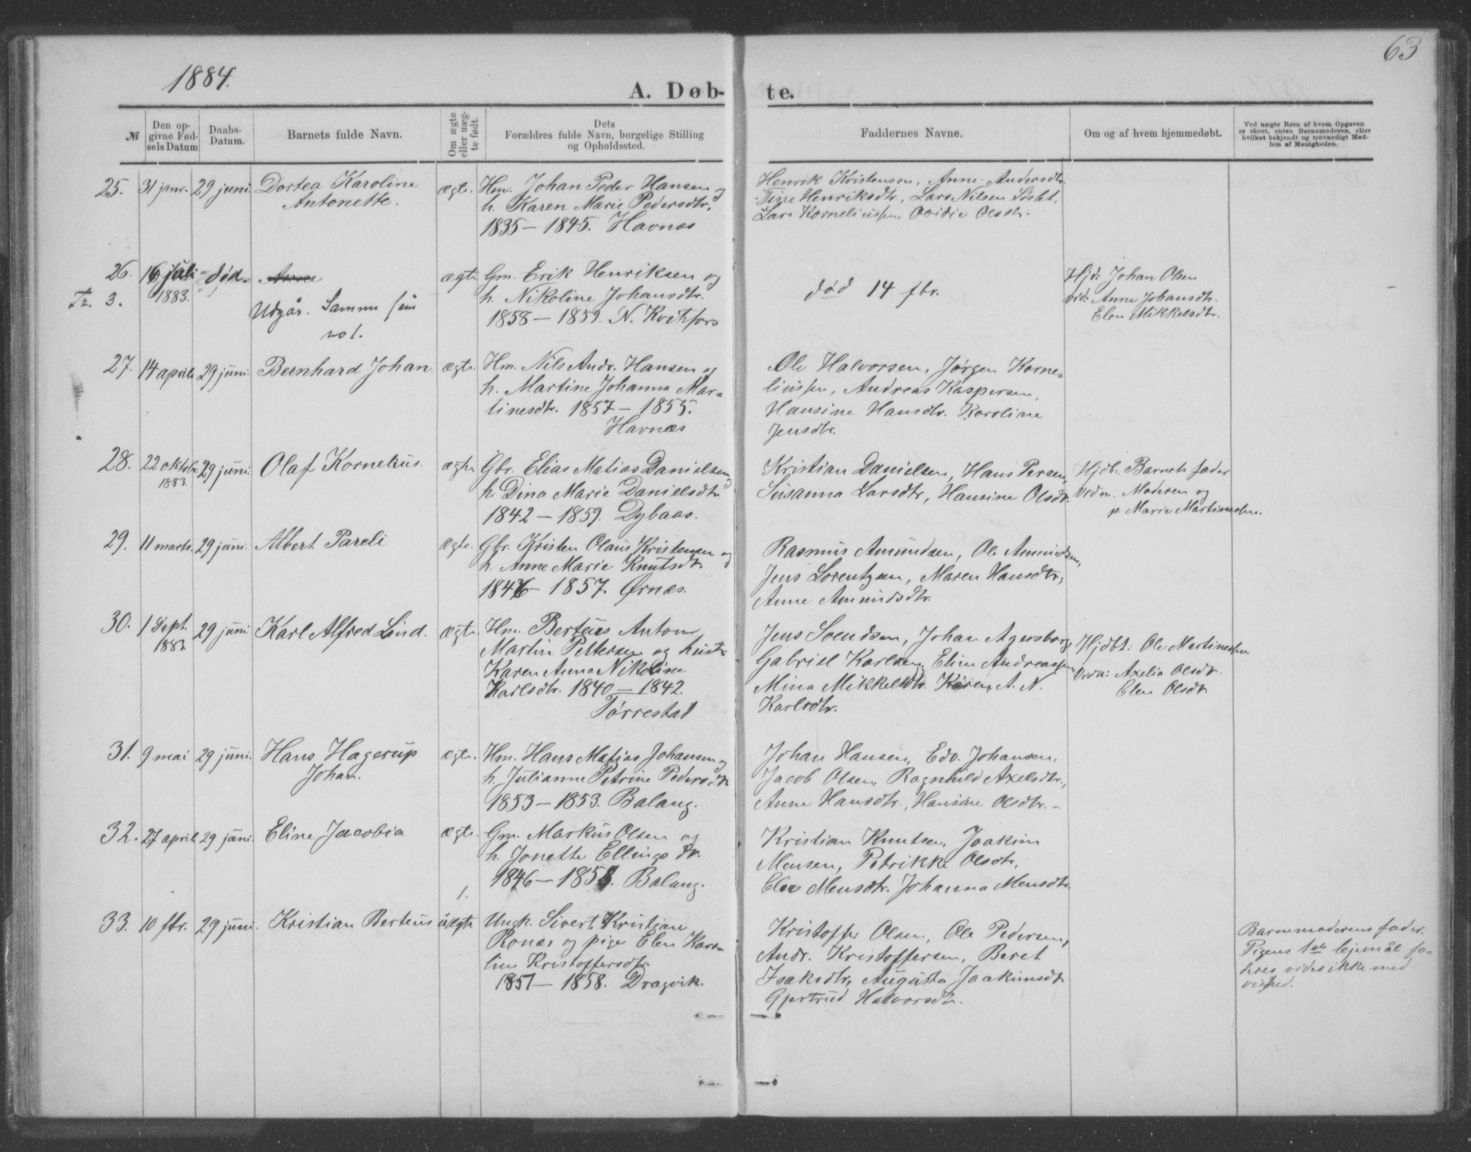 63
1884.
A. Døb- te.
№
Den op-
givne Fød-
sels Datum
Daabs-
Datum.
Barnets fulde Navn.
Om ægte
eller uæg-
te født.
Dets
Forældres fulde Navn, borgelige Stilling
og Opholdssted.
Faddernes Navne.
Om og af hvem hjemmedøbt.
Ved uægte Børn af hvem Opgaven
er skeet, enten Barnemoderen, eller
hvilket bekjendt og troværdigt Med-
lem af Menigheden.
25. 31 janr. 29 juni Dortea Karoline
Antonette.
ægte.
Hm. Johan Peder Hansen og
h. Karen Marie Pedersdtr.
1835 – 1845. Havnæs
Henrik Kristenson, Anne Andersdtr.
Henriksdtr, Lars Nilsen
Lars Korneliussen, Ovidie Olsdtr.
26. 16 juli død.
Tr. 3. 1883.
Anne
Udgår. Samme
no 1.
ægte
Gm. Erik Henriksen og
h. Nikoline Johansdtr.
1858 – 1859. N. Kvitfors
død 14 fbr.
Hjd: Johan Olsen
vid: Anne Johansdtr.
Elen Mikkelsdtr.
27. 14 april 29 juni. Bernhard Johan. ægte.
Hm. Nils Andr. Hansen og
h. Martine Johanna Mar-
tinesdtr. 1857 – 1855.
Havnæs
Ole Halvorsen, Jørgen Korne-
liussen, Andreas Kaspersen,
Hansine Hansdtr. Karoline
Jensdtr.
28. 22 oktobr. 29 juni. Olaf Kornelius. ægte
1883.
Gbr. Elias Matias Danielsen og
h. Dina Marie Danielsdtr.
1842 – 1859. Dybaas.
Kristian Danielsen, Hans Persen,
Susanna Larsdtr, Hansine Olsdtr.
Hjdb. Barnets fader
Vidn. Moderen og
p. Marie Martinsdtr.
29. 11 marts. 29 juni. Albert Pareli ægte.
Gbr. Kristen Olaus Kristensen og
h. Anne Marie Knutsdtr.
1846 – 1857. Ørnæs.
Rasmus Amundsen, Ole Amundsen,
Jens Lorentzen, Maren Hansdtr,
Anne Amundsdtr.
30. 1 Sept. 29 juni Karl Alfred Lind. ægte.
1883
Hm. Berteus Anton
Martin Pettersen og hustr
Karen Anna Nikoline
Karlsdtr. 1840 – 1842.
Tørrestad
Jens Svendsen, Johan Agersborg,
Gabriel Karlsen, Eline Andreassen
Mina Mikkelsdtr. Karen A. N.
Karlsdtr.
Hjdbt: Ole Martinessen
Vidn: Axelia Olsdtr.
Elen Olsdtr
31. 9 mai 29 juni. Hans Hagerup
Johan.
ægte.
Hm. Hans Matias Johansen og
h. Julianne Petrine Pedersdtr
1853 – 1853. Balang.
Johan Hansen, Edv. Johansen,
Jacob Olsen, Ragnhild Axelsdtr,
Anne Hansdtr, Hansine Olsdtr. –
32. 27 april 29 juni. Eline Jacobia ægte.
Gm. Markus Olsen og
h. Jonette Ellingsdtr.
1846 – 1858. Balang.
Kristian Knutsen, Joakim
Monsen, Petrikke Olsdtr.
Elen Monsdtr. Johanna Monsdtr.
1.
33. 10 fbr. 29 juni. Kristian Berteus uægte
Ungk. Sivert Kristian
Ronæs og pige Elen Karo-
line Kristoffersdtr.
1857 – 1858. Dragvik.
Kristoffer Olsen, Ole Pedersen,
Andr. Kristoffersen, Beret
Isaksdtr, Augusta Joakimsdtr.
Gjertrud Halvorsdtr.
Barnemoderens fader.
Pigens 1ste lejemål fa-
derens vides ikke med
vished.